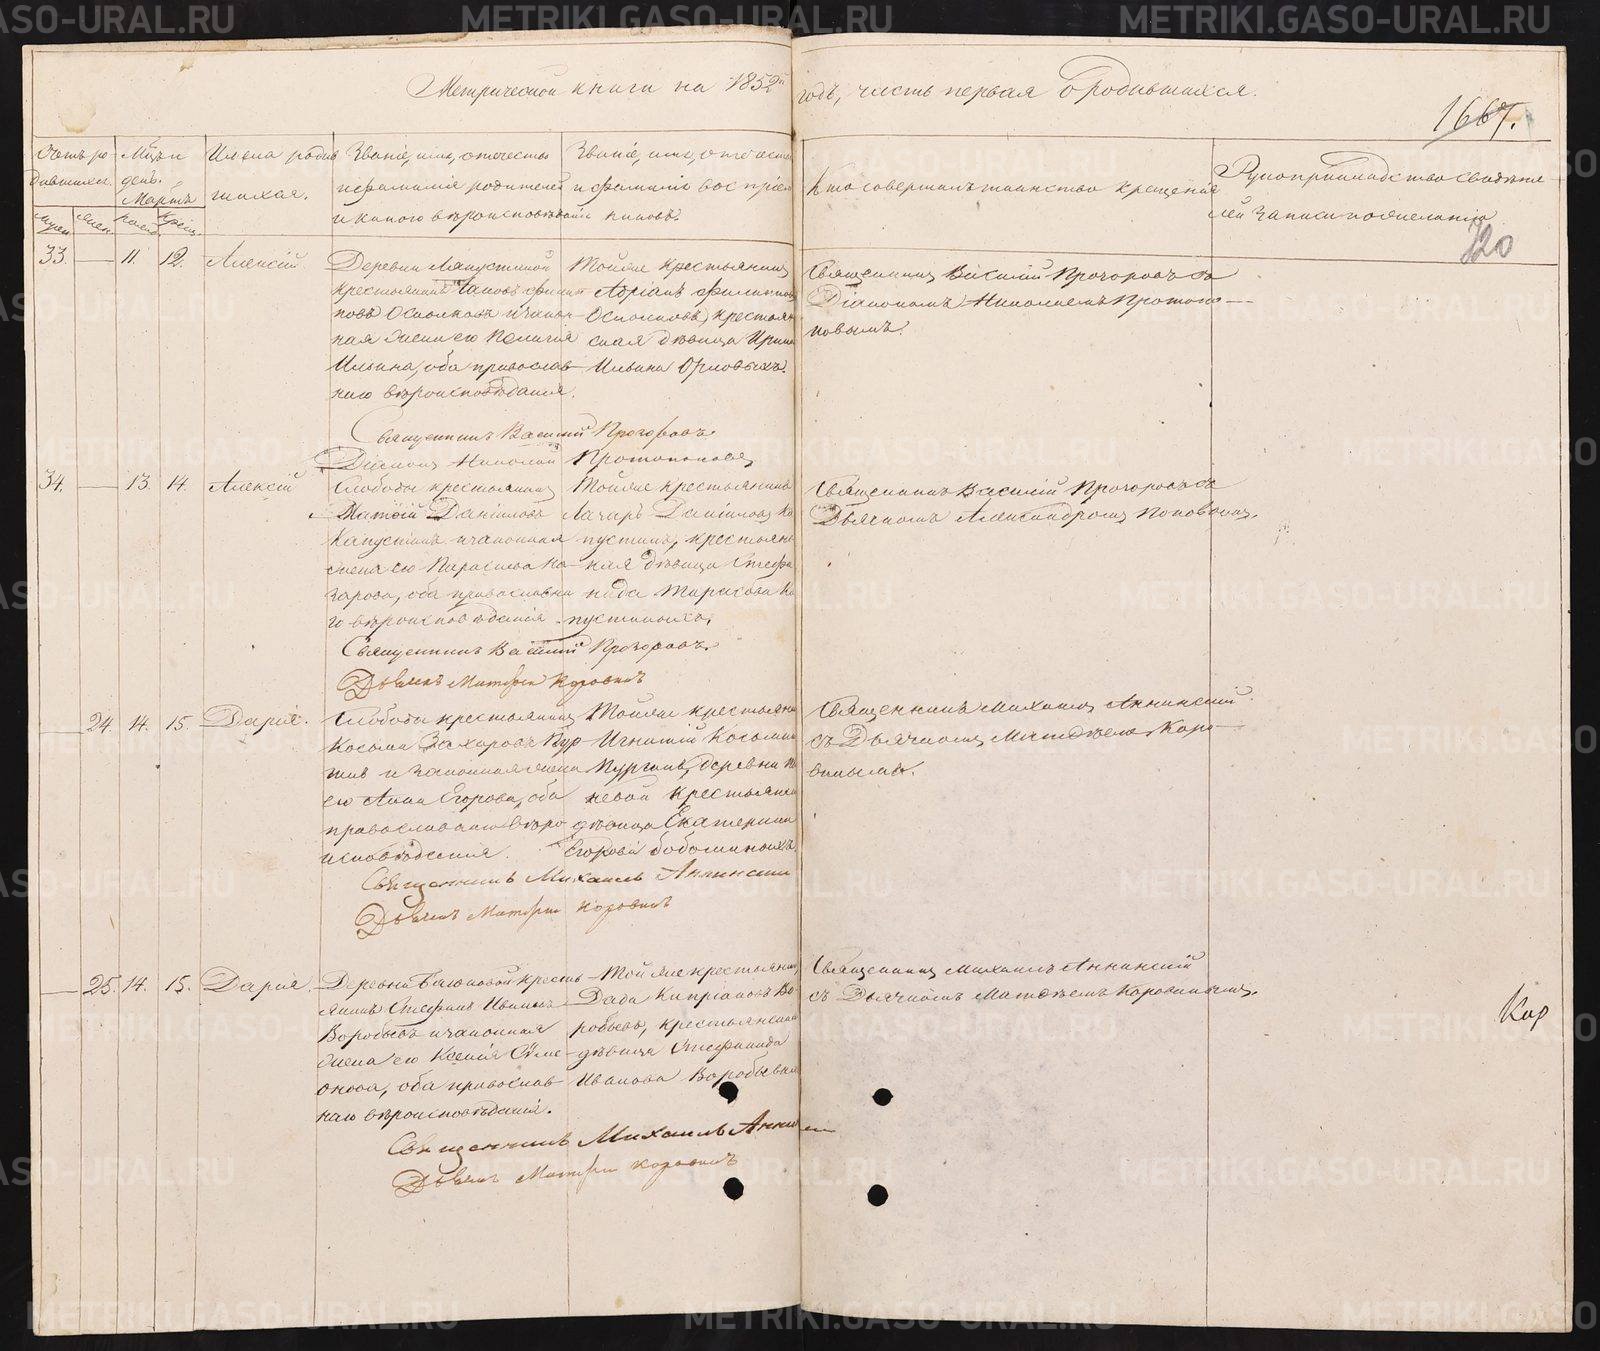 Метрической книги на 1852й годъ, часть первая о родившихся.
1667.
Счетъ родившихся.
Мѣц. и день.
Мартъ
Имена родившихся.
Званіе, имя, отчество и фамилія родителей и какого вѣроисповѣданія
Званіе, имя, отчество и фамилія воспріемниковъ.
Кто совершалъ таинство крещенія
Рукоприкладство свидѣтелей записи по желанію
120
33. — 11. 12. Алексій
Деревни
крестьянинъ Іаковъ Филип
повъ и закон
ная жена его Пелагія
Ильина, оба православ
наго вѣроисповѣданія.
Тойже крестьянинъ
Адріанъ Филипповъ
крестьян
ская дѣвица Ирина
Ильина Орловыхъ.
Священникъ Василій Прозоровъ съ
Діакономъ Николаемъ Протопо
повымъ.
Священникъ Василій Прозоровъ.
Діаконъ Николай Протопоповъ
34. — 13. 14. Алексій
Слободы крестьянинъ
Матѳій Даніиловъ
Капустинъ и законная
жена его Параскева На
зарова, оба православна
го вѣроисповѣданія.
Тойже крестьянинъ
Лазарь Даніиловъ Ка
пустинъ, крестьянс
кая дѣвица Стефа
нида Тарасова Ка
пустиныхъ.
Священникъ Василій Прозоровъ съ
Дьячкомъ Александромъ Поповымъ.
Священникъ Василій Прозоровъ.
Дьячекъ Матѳей Коровинъ
— 24. 14. 15. Дарія.
Слободы крестьянинъ
Косьма Захаровъ Кур
ганъ и законная жена
его Анна Егорова, оба
православнаго вѣро
исповѣданія.
Тойже крестьянинъ
Игнатій Косьминъ
деревни
крестьянская
дѣвица Екатерина
Егорова
Священникъ Михаилъ Аннинскій
съ Дьячкомъ Матѳѣемъ Коро
винымъ.
Священникъ Михаилъ Аннинскій
Дьячекъ Матѳей Коровинъ
— 25. 14. 15. Дарія.
Деревни кресть
янинъ Стефанъ Ивановъ
Воробьевъ и законная
жена его Ксенія Симе
онова, оба православ
наго вѣроисповѣданія.
Тойже крестьянинъ
Кипріановъ Во
робьевъ, крестьянская
дѣвица Стефанида
Иванова Воробьевыхъ
Священникъ Михаилъ Аннинскій
съ Дьячкомъ Матѳѣемъ Коровинымъ.
Кор
Священникъ Михаилъ Аннинскій
Дьячекъ Матѳей Коровинъ
METRIKI.GASO-URAL.RU